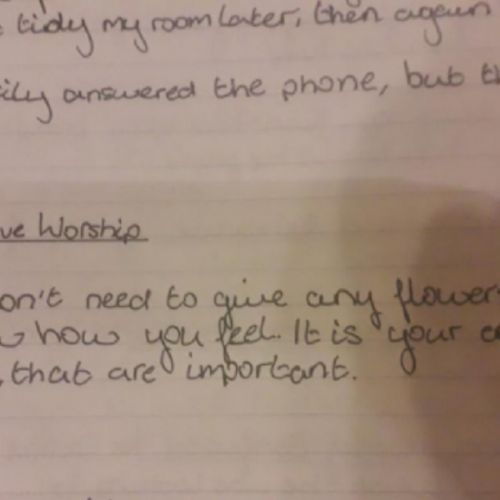 tidy my room later, then again
answered the phone, but
Worship
need to give any
how you feel. It is your
that are important.